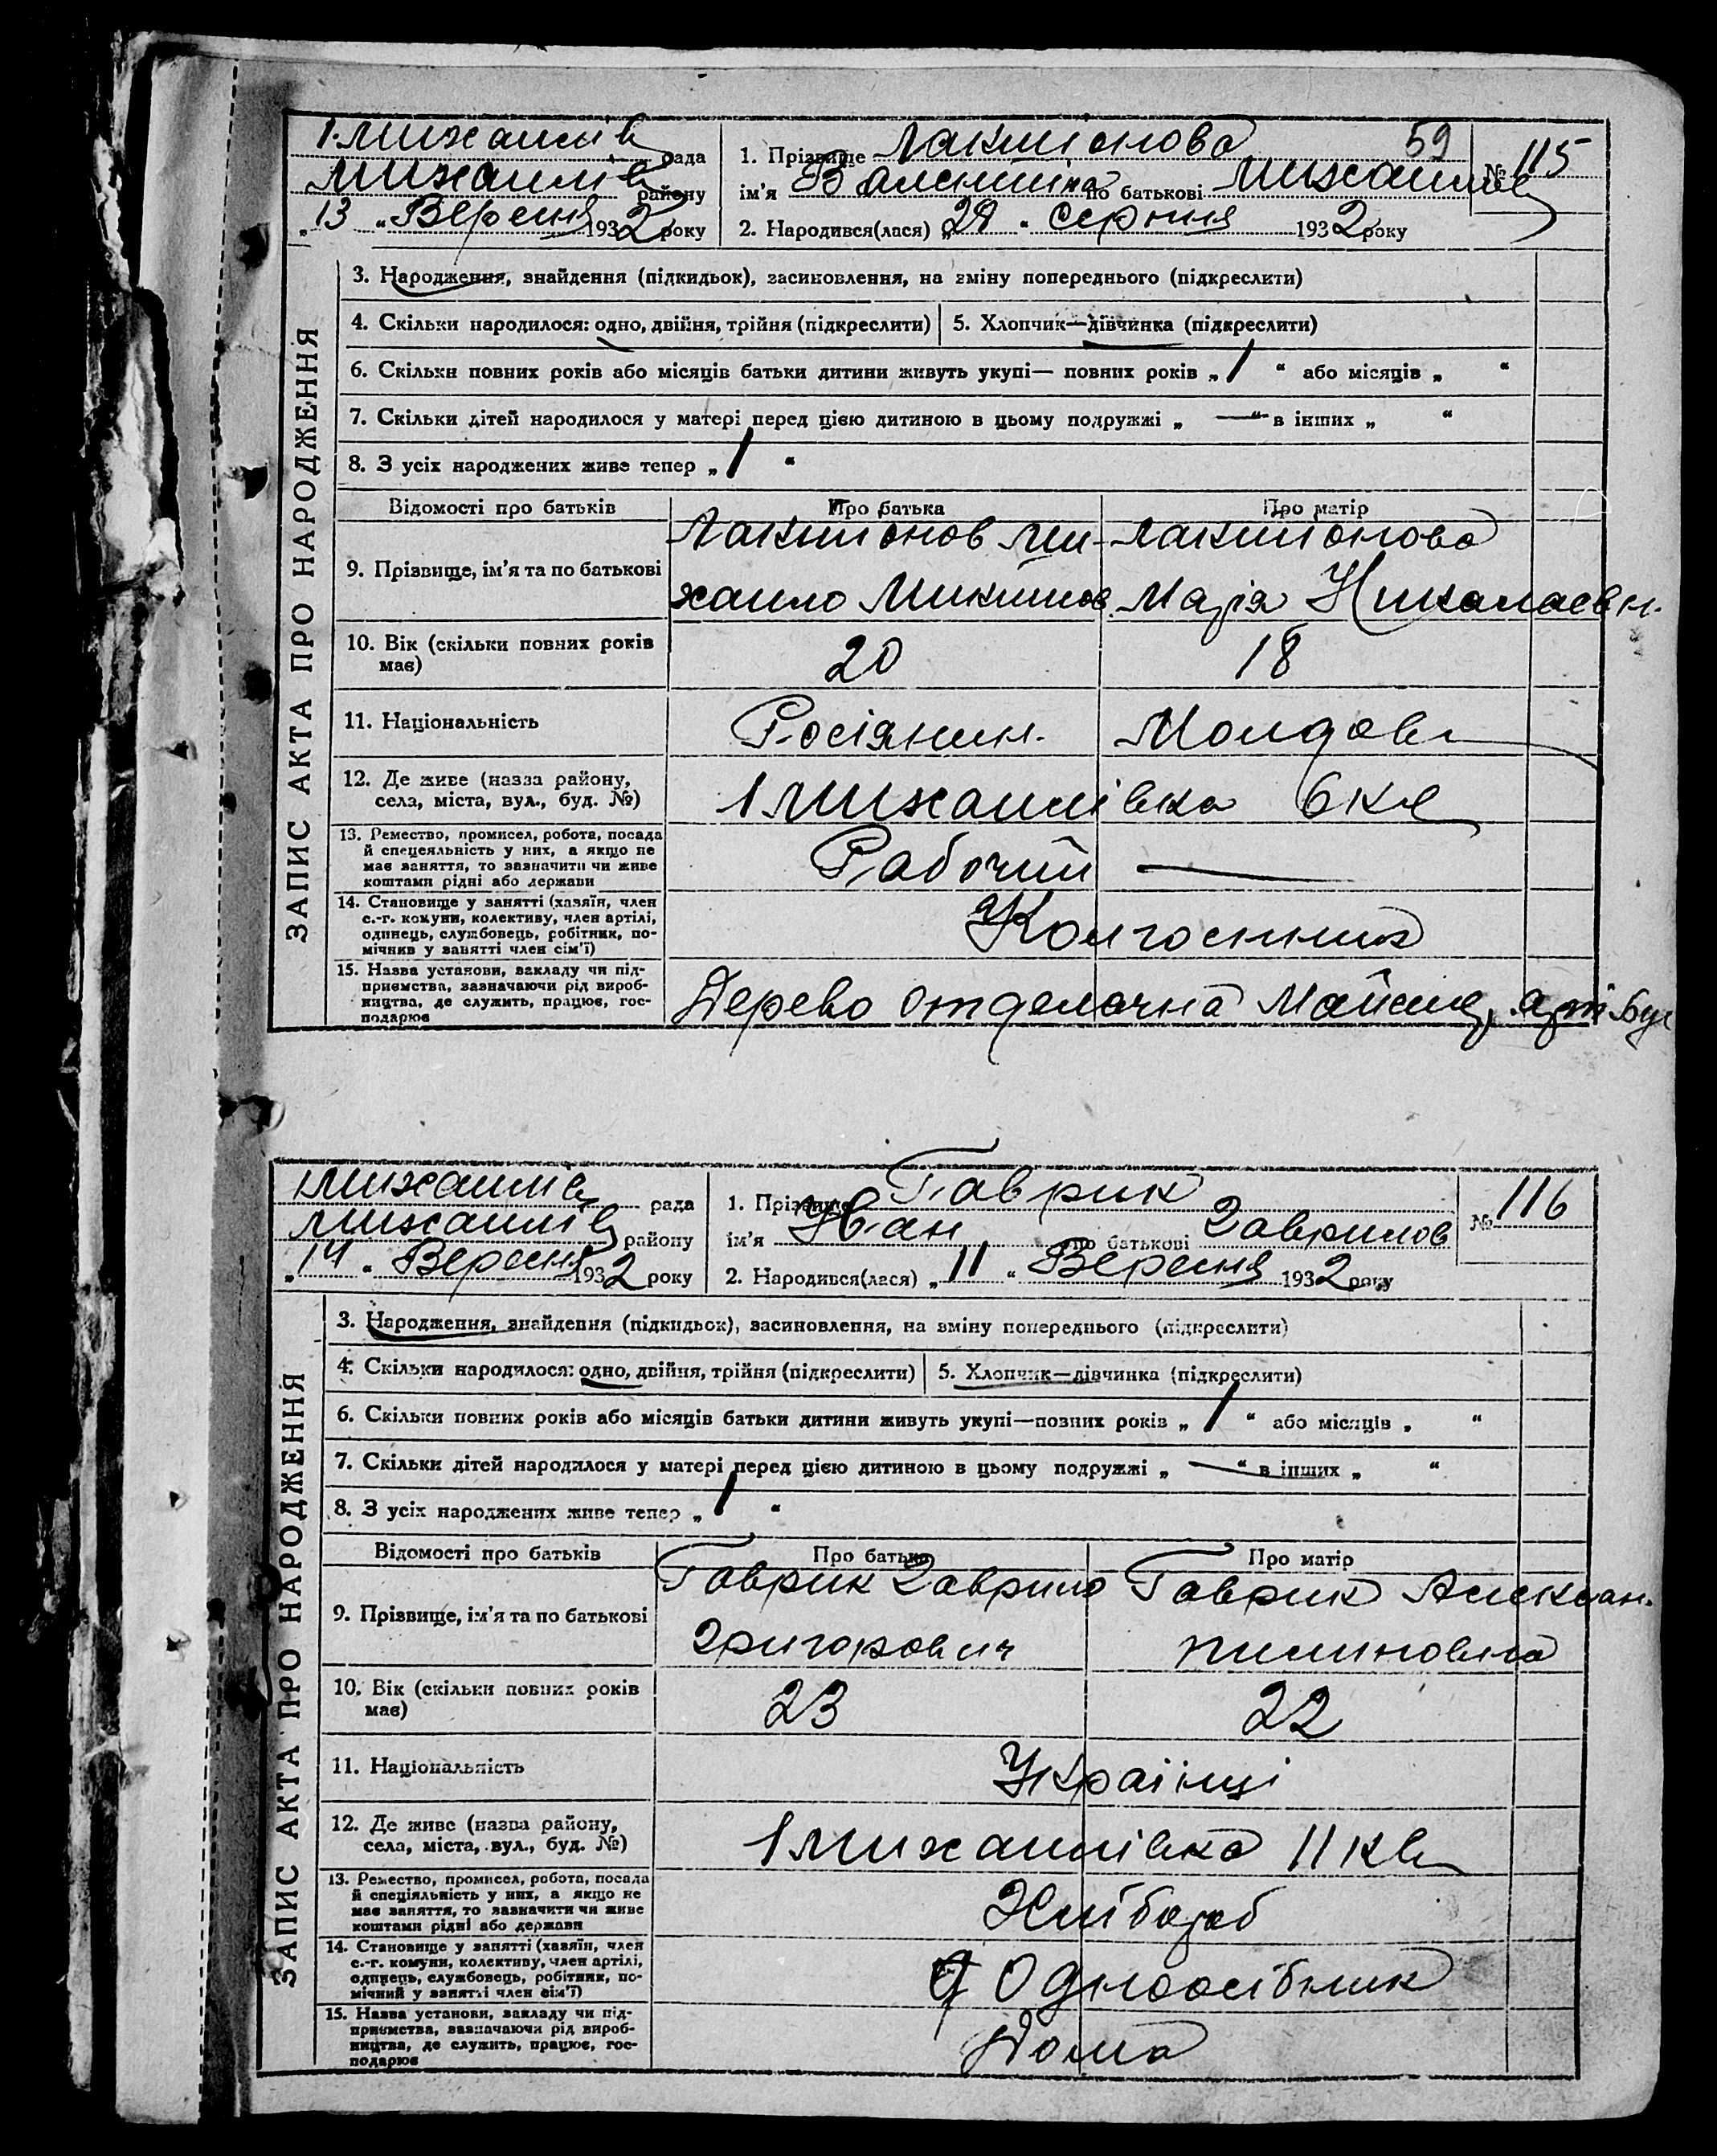 1. Михайлів рада
Михайлів району
„13„ Вересня 1932 року
1. Прізвище Лактіонова 59
ім'я Валентіна по батькові Михайлов
№ 115
2. Народився(лася) „28„ Серпня 1932 року
ЗАПИС АКТА ПРО НАРОДЖЕННЯ
3. Народження, знайдення (підкидьок), засиновлення, на зміну попереднього (підкреслити)
4. Скільки народилося: одно, двійня, трійня (підкреслити) 5. Хлопчик—дівчинка (підкреслити)
6. Скільки повних років або місяців батьки дитини живуть укупі— повних років „ 1 “ або місяців „ “
7. Скільки дітей народилося у матері перед цією дитиною в цьому подружжі „ — “ в інших „ “
8. З усіх народжених живе тепер „ 1 “
Відомості про батьків Про батька Про матір
9. Прізвище, ім'я та по батькові
Лактионов Ми-
хаило
Лактионова
Марія Николаевн.
10. Вік (скільки повних років
має)
20 18
11. Національність Росіянин. Молдав
12. Де живе (назва району,
села, міста, вул., буд. №)
1 Михайлівка 6 кв
13. Ремество, промисел, робота, посада
й спецеяльність у них, а якщо не
має заняття, то зазначити чи живе
коштами рідні або держави
Рабочий —
14. Становище у занятті (хазяїн, член
с.-г. комуни, колективу, член артілі,
одинець, службовець, робітник, по-
мічник у занятті член сім'ї)
Колгосник
15. Назва установи, закладу чи під-
приємства, зазначаючи рід вироб-
ництва, де служить, працює, гос-
подарює
Дерево отделочна
1 Михайлів рада
Михайлів району
„14„ Вересня 1932 року
1. Прізвище Гаврик
ім'я Иван по батькові Гаврилов
№ 116
2. Народився(лася) „11“ Вересня 1932 року
ЗАПИС АКТА ПРО НАРОДЖЕННЯ
3. Народження, знайдення (підкидьок), засиновлення, на зміну попереднього (підкреслити)
4. Скільки народилося: одно, двійня, трійня (підкреслити) 5. Хлопчик—дівчинка (підкреслити)
6. Скільки повних років або місяців батьки дитини живуть укупі—повних років „ 1 “ або місяців „ “
7. Скільки дітей народилося у матері перед цією дитиною в цьому подружжі „ — “ в інших „ “
8. З усіх народжених живе тепер „ 1 “
Відомості про батьків Про батька Про матір
9. Прізвище, ім'я та по батькові
Гаврик Гаврило
Григорович
Гаврик Алексан.
10. Вік (скільки повних років
має)
23 22
11. Національність Українці
12. Де живе (назва району,
села, міста, вул., буд. №)
1 Михайлівка 11 кв
13. Ремество, промисел, робота, посада
й спеціяльність у них, а якщо не
має заняття, то зазначити чи живе
коштами рідні або держави
Хлібороб
14. Становище у занятті (хазяїн, член
с.-г. комуни, колективу, член артілі,
одинець, службовець, робітник, по-
мічний у занятті член сім'ї)
Одноосібник
15. Назва установи, закладу чи під-
приємства, зазначаючи рід вироб-
ництва, де служить, працює, гос-
подарює
Дома